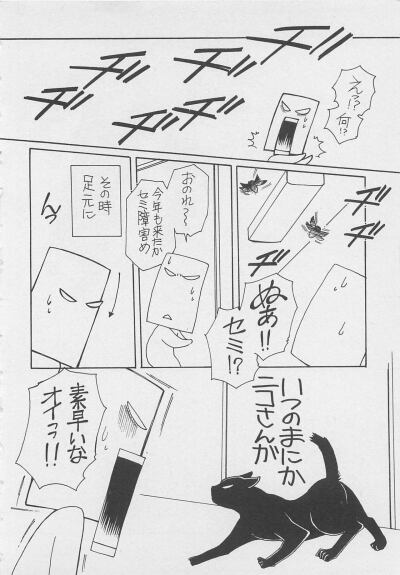 ヂヂッ
ヂヂッ
ヂヂッ
ヂヂッ
えっ!?
何!?
ヂヂッ
ヂヂッ
ぬあ!!
セミ!?
おのれ〜
今年も来たか
セミ障害め
その時
足元に
んっ
いつのまにか
ニコさんが
素早いな
オイっ!!